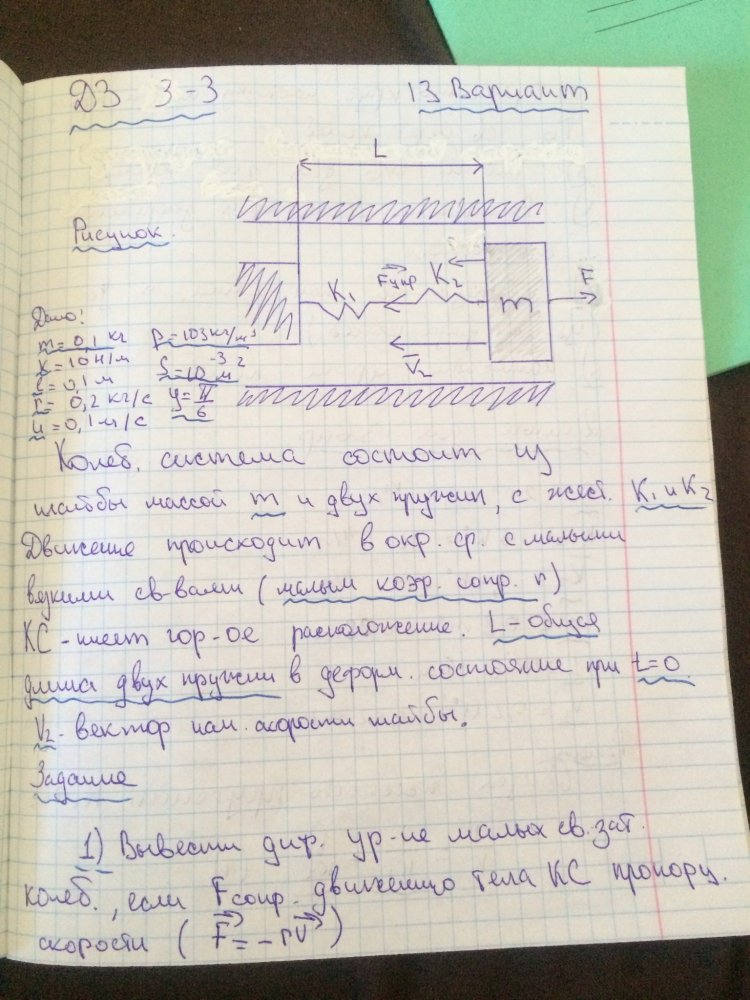 ДЗ 3-3
13 Вариант
L
Рисунок.
K₁ Fупр K₂ m F
V₂
Дано:
m = 0,1 кг ρ = 103 кг/м³
K = 10 Н/м S = 10⁻³ м²
ℓ = 0,1 м
r = 0,2 кг/с y = π/6
u = 0,1 м/с
Колеб. система состоит из
шайбы массой m и двух пружин, с жест. K₁ и K₂
Движение происходит в окр. ср. с малыми
вязкими св-вами (малым коэф. сопр. r)
КС - имеет гор-ое расположение. L - общая
длина двух пружин в деформ. состояние при t=0.
V₂ - вектор нач. скорости шайбы.
Задание
1) Вывести диф. ур-ие малых св. зат.
колеб., если Fсопр. движению тела КС пропорц.
скорости (F = -rV)